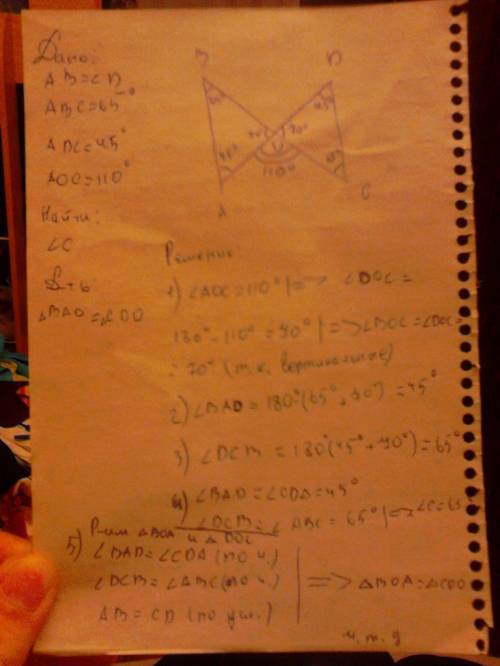 Дано:
AB=CD
ABC=65°
ADC=45°
AOC=110°
Найти:
∠C
ΔBAO=ΔCDO
B
D
A
C
45°
70°
70°
110°
Решение:
1) ∠AOC=110° |=> ∠DOC=
180°-110°=70° |=> ∠BOC=∠DOC=
=70° (т.к. вертикальные)
2) ∠BAD=180°(65°+70°)=45°
3) ∠DCB=180°(45°+70°)=65°
4) ∠BAD=∠CDA=45°
∠DCB=∠ABC=65° |=> ∠C=65
5) Р-им ΔBOA и ΔDOC
∠BAD=∠CDA (по п.)
∠DCB=∠ABC (по п.)
AB=CD (по усл.)
=> ΔBOA=ΔCOD
ч.т.д